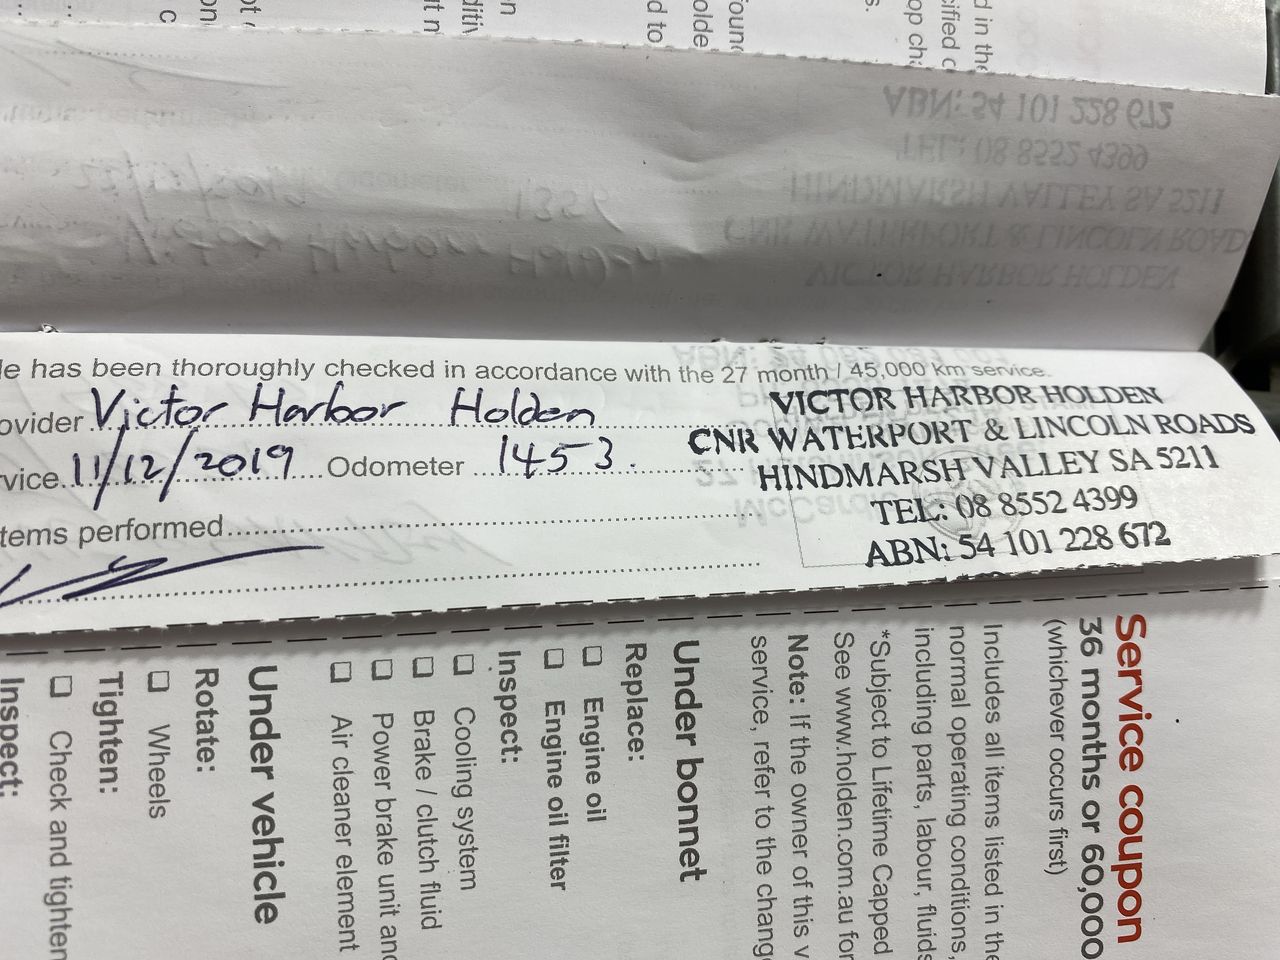 le has been thoroughly checked in accordance with the 27 month / 45,000 km service.
ovider Victor Harbor Holden
vice 11/12/2019 Odometer 1453.
tems performed
VICTOR HARBOR HOLDEN
CNR WATERPORT & LINCOLN ROADS
HINDMARSH VALLEY SA 5211
TEL: 08 8552 4399
ABN: 54 101 228 672
Service coupon
36 months or 60,000
(whichever occurs first)
Includes all items listed in the
normal operating conditions,
including parts, labour, fluids
*Subject to Lifetime Capped
See www.holden.com.au for
Note: If the owner of this v
service, refer to the change
Under bonnet
Replace:
☐ Engine oil
☐ Engine oil filter
Inspect:
☐ Cooling system
☐ Brake / clutch fluid
☐ Power brake unit and
☐ Air cleaner element
Under vehicle
Rotate:
☐ Wheels
Tighten:
☐ Check and tighten
Inspect: